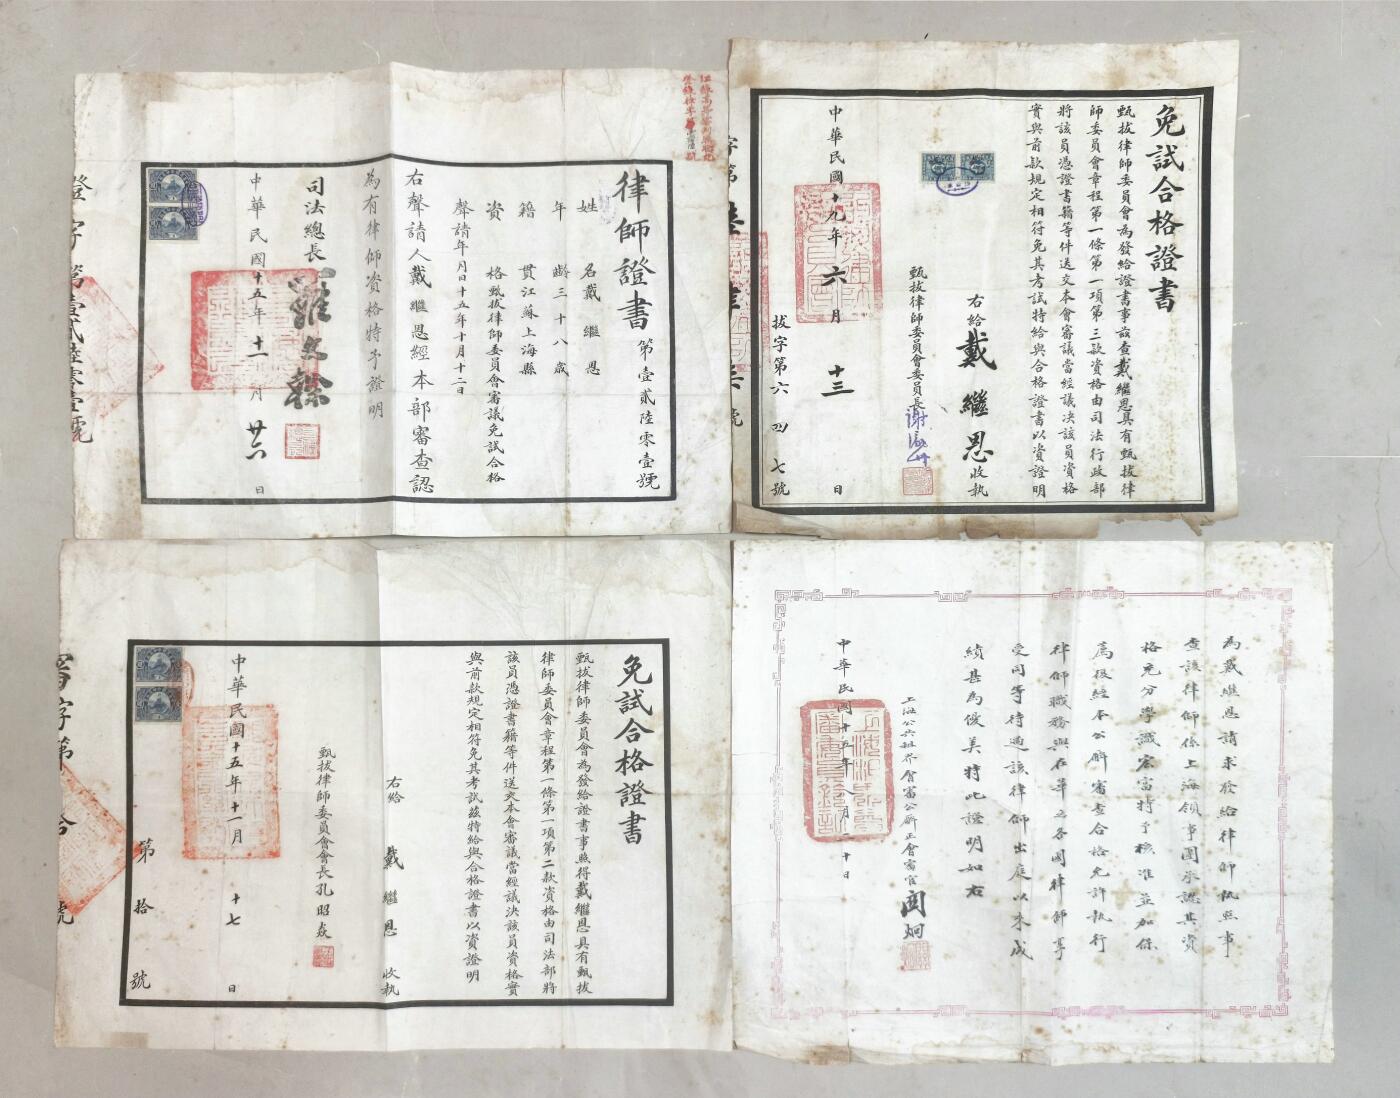 律師證書第壹貳陸零壹號
姓名戴繼恩
年齡三十八歲
籍貫江蘇上海縣
資格甄拔律師委員會審議免試合格
聲請年月日十五年十月十二日
右聲請人戴繼恩經本部審查認
為有律師資格特予證明
司法總長羅文榦
中華民國十五年十一月廿六日
證字第壹貳陸零壹號
免試合格證書
甄拔律師委員會為發給證書事茲查戴繼恩具有甄拔律
師委員會章程第一條第一項第三款資格由司法行政部
將該員憑證書籍等件送交本會審議當經議決該員資格
實與前款規定相符免其考試特給與合格證書以資證明
右給戴繼恩收執
甄拔律師委員會委員長
中華民國十九年六月十三日
拔字第六四七號
免試合格證書
甄拔律師委員會為發給證書事照得戴繼恩具有甄拔
律師委員會章程第一條第一項第二款資格由司法部將
該員憑證書籍等件送交本會審議當經議決該員資格實
與前款規定相符免其考試茲特給與合格證書以資證明
右給戴繼恩收執
甄拔律師委員會會長孔昭焱
中華民國十五年十一月十七日
第拾號
為戴繼恩請求發給律師執照事
查該律師係上海領事團承認其資
格充分學識宏富特予核准並加保
薦後經本公廨審查合格允許執行
律師職務與在華之各國律師享
受同等待遇該律師出庭以來成
績甚為優美特此證明如右
上海公共租界會審公廨正會審官關炯
中華民國十五年八月二十日